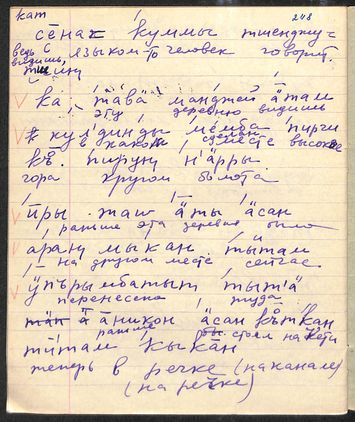 кат 248
сēнаҷ куммы тшенджу=
ведь языком-то человек говорит.
видишь,
ка, тава манджей āтам
эту деревню видишь
кулдинды мемба пирги
в каком сделан месте высокое
къ̄. пирунӷ нʼӓрры.
гора кругом болота
ӣры таш ӓты ӓсан
раньше эта деревня была
аранӷ мыкан тытам
на другом месте сейчас
ӱпърымбатыт тытӓ
перенесена туда
āникон ӓсан къткан
раньше стоял на Кети
тӣтам кыкāн
теперь в речке (на канале)
(на речке)